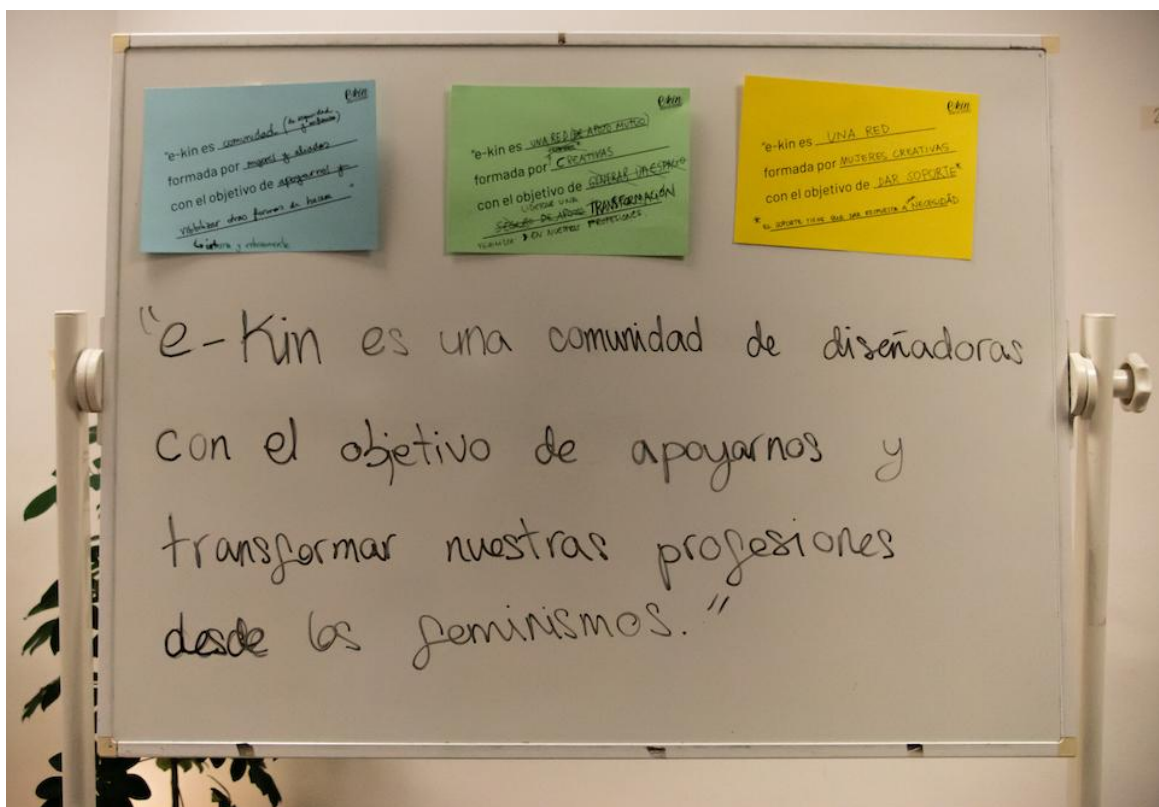 e-kin
"e-kin es comunidad (de seguridad
y
formada por mujeres y aliadas
con el objetivo de apoyarnos y
visibilizar otras formas de hacer"
interna y externamente
e-kin
"e-kin es UNA RED (DE APOYO MUTUO)
formada por CREATIVAS
con el objetivo de GENERAR UN ESPACIO
LIDERAR UNA
SEGURO DE APOYO TRANSFORMACIÓN
EN NUESTRAS PROFESIONES
e-kin
"e-kin es UNA RED
formada por MUJERES CREATIVAS
con el objetivo de DAR SOPORTE"*
* EL SOPORTE TIENE QUE SER RESPUESTA A NECESIDAD
"e-Kin es una comunidad de diseñadoras
con el objetivo de apoyarnos y
transformar nuestras profesiones
desde los feminismos."